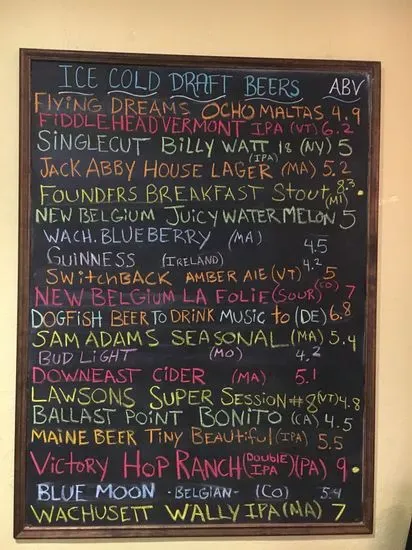 ICE COLD DRAFT BEERS ABV
FLYING DREAMS OCHO MALTAS 4.9
FIDDLEHEAD VERMONT IPA (VT) 6.2
SINGLECUT BILLY WATT 18 (IPA) (NY) 5
JACK ABBY HOUSE LAGER (MA) 5.2
FOUNDERS BREAKFAST STOUT (MI) 8.3
NEW BELGIUM JUICY WATERMELON 5
WACH. BLUEBERRY (MA) 4.5
GUINNESS (IRELAND) 4.2
SWITCHBACK AMBER ALE (VT) 5
NEW BELGIUM LA FOLIE (SOUR) (CO) 7
DOGFISH BEER TO DRINK MUSIC to (DE) 6.8
SAM ADAMS SEASONAL (MA) 5.4
BUD LIGHT (MO) 4.2
DOWNEAST CIDER (MA) 5.1
LAWSONS SUPER SESSION #8 (VT) 4.8
BALLAST POINT BONITO (CA) 4.5
MAINE BEER TINY BEAUTIFUL (IPA) 5.5
VICTORY HOP RANCH (DOUBLE IPA) (PA) 9
BLUE MOON - BELGIAN - (CO) 5.4
WACHUSETT WALLY IPA (MA) 7